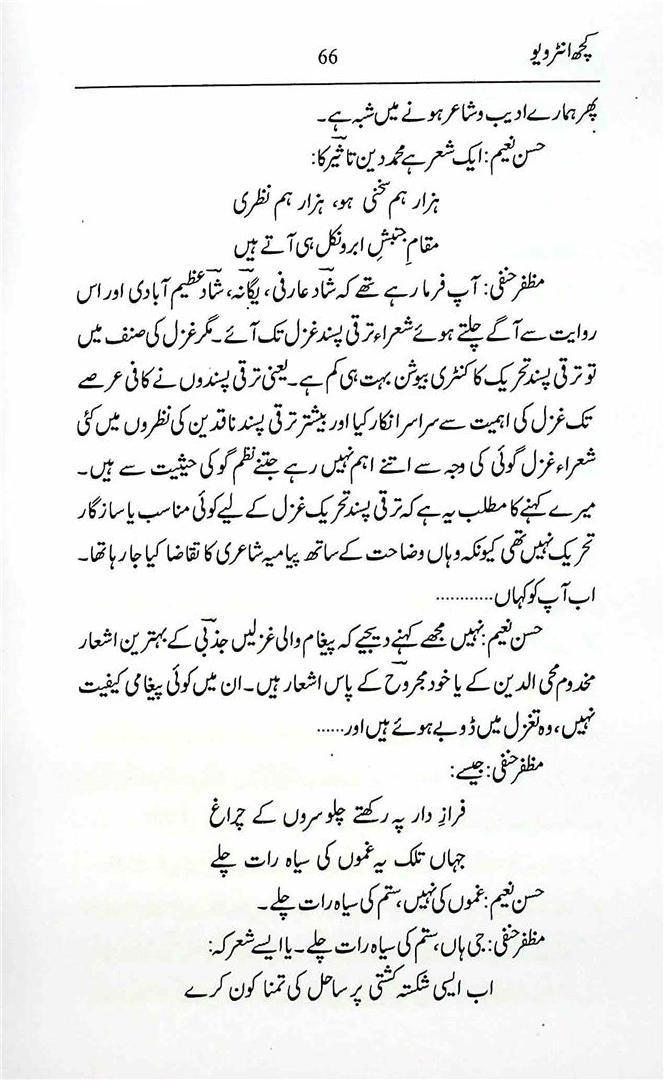 کچھ انٹرویو
66
پھر ہمارے ادیب و شاعر ہونے میں شبہ ہے۔
حسن نعیم: ایک شعر ہے محمد دین تاثیرؔ کا:
ہزار ہم سخنی ہو، ہزار ہم نظری
مقامِ جنبشِ ابرو نکل ہی آتے ہیں
مظفر حنفی: آپ فرما رہے تھے کہ شادؔ عارفی، یگانہؔ، شادؔ عظیم آبادی اور اس
روایت سے آگے چلتے ہوئے شعراء ترقی پسند غزل تک آئے۔ مگر غزل کی صنف میں
تو ترقی پسند تحریک کا کنٹری بیوشن بہت ہی کم ہے۔ یعنی ترقی پسندوں نے کافی عرصے
تک غزل کی اہمیت سے سراسر انکار کیا اور بیشتر ترقی پسند ناقدین کی نظروں میں کئی
شعراء غزل گوئی کی وجہ سے اتنے اہم نہیں رہے جتنے نظم گو کی حیثیت سے ہیں۔
میرے کہنے کا مطلب یہ ہے کہ ترقی پسند تحریک غزل کے لیے کوئی مناسب یا سازگار
تحریک نہیں تھی کیونکہ وہاں وضاحت کے ساتھ پیامیہ شاعری کا تقاضا کیا جا رہا تھا۔
اب آپ کو کہاں............
حسن نعیم: نہیں مجھے کہنے دیجیے کہ پیغام والی غزلیں جذبیؔ کے بہترین اشعار
مخدوم محی الدین کے یا خود مجروحؔ کے پاس اشعار ہیں۔ ان میں کوئی پیغامی کیفیت
نہیں، وہ تغزل میں ڈوبے ہوئے ہیں اور......
مظفر حنفی: جیسے:
فرازِ دار پہ رکھتے چلو سروں کے چراغ
جہاں تلک یہ غموں کی سیاہ رات چلے
حسن نعیم: غموں کی نہیں، ستم کی سیاہ رات چلے۔
مظفر حنفی: جی ہاں، ستم کی سیاہ رات چلے۔ یا ایسے شعر کہ:
اب ایسی شکستہ کشتی پر ساحل کی تمنا کون کرے